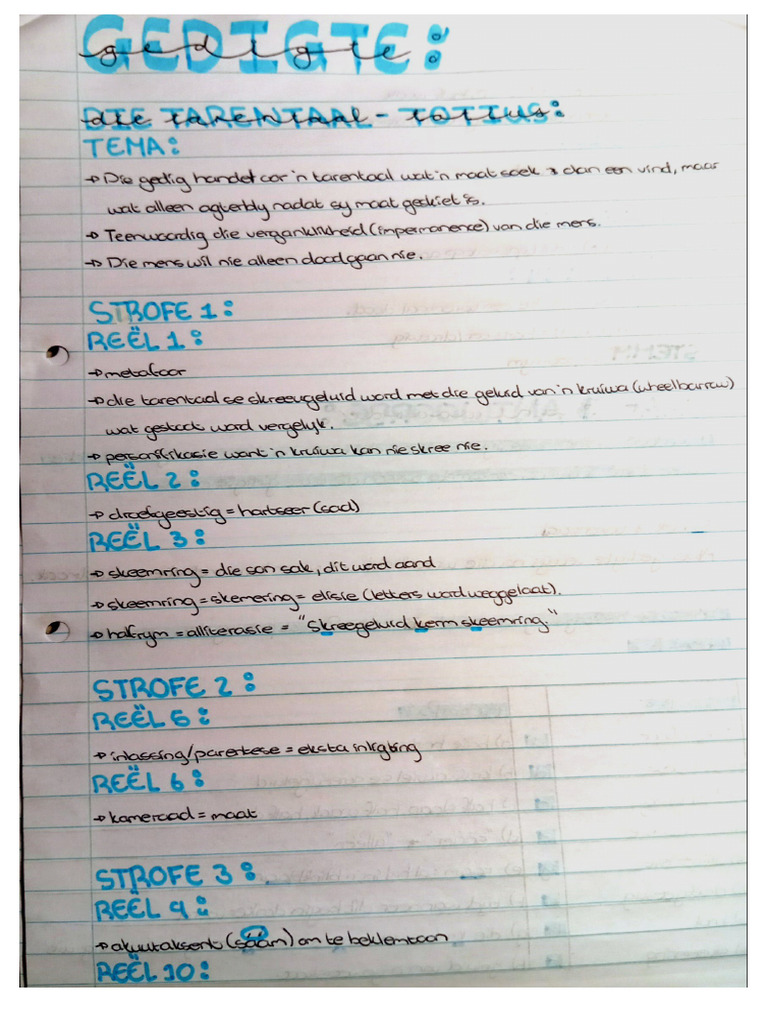 GEDIGTE:
gedigte
DIE TARENTAAL - TOTIUS:
TEMA:
→ Die gedig handel oor 'n tarentaal wat 'n maat soek & dan een vind, maar
wat alleen agterbly nadat sy maat geskiet is.
→ Teenwoordig die verganklikheid (impermanence) van die mens.
→ Die mens wil nie alleen doodgaan nie.
STROFE 1:
REËL 1:
→ metafoor
→ die tarentaal se skreeugeluid word met die geluid van 'n kruiwa (wheelbarrow)
wat gestoot word vergelyk.
→ personifikasie want 'n kruiwa kan nie skree nie.
REËL 2:
→ droefgeestig = hartseer (sad)
REËL 3:
→ skeemring = die son sak, dit word aand
→ skeemring = skemering = elisie (letters word weggelaat).
→ halfrym = alliterasie = "Skreegeluid kerm skeemring."
STROFE 2:
REËL 5:
→ inlassing/parentese = eksta inligting
REËL 6:
→ kameraad = maat
STROFE 3:
REËL 9:
→ akuutaksent (sáám) om te beklemtoon
REËL 10: